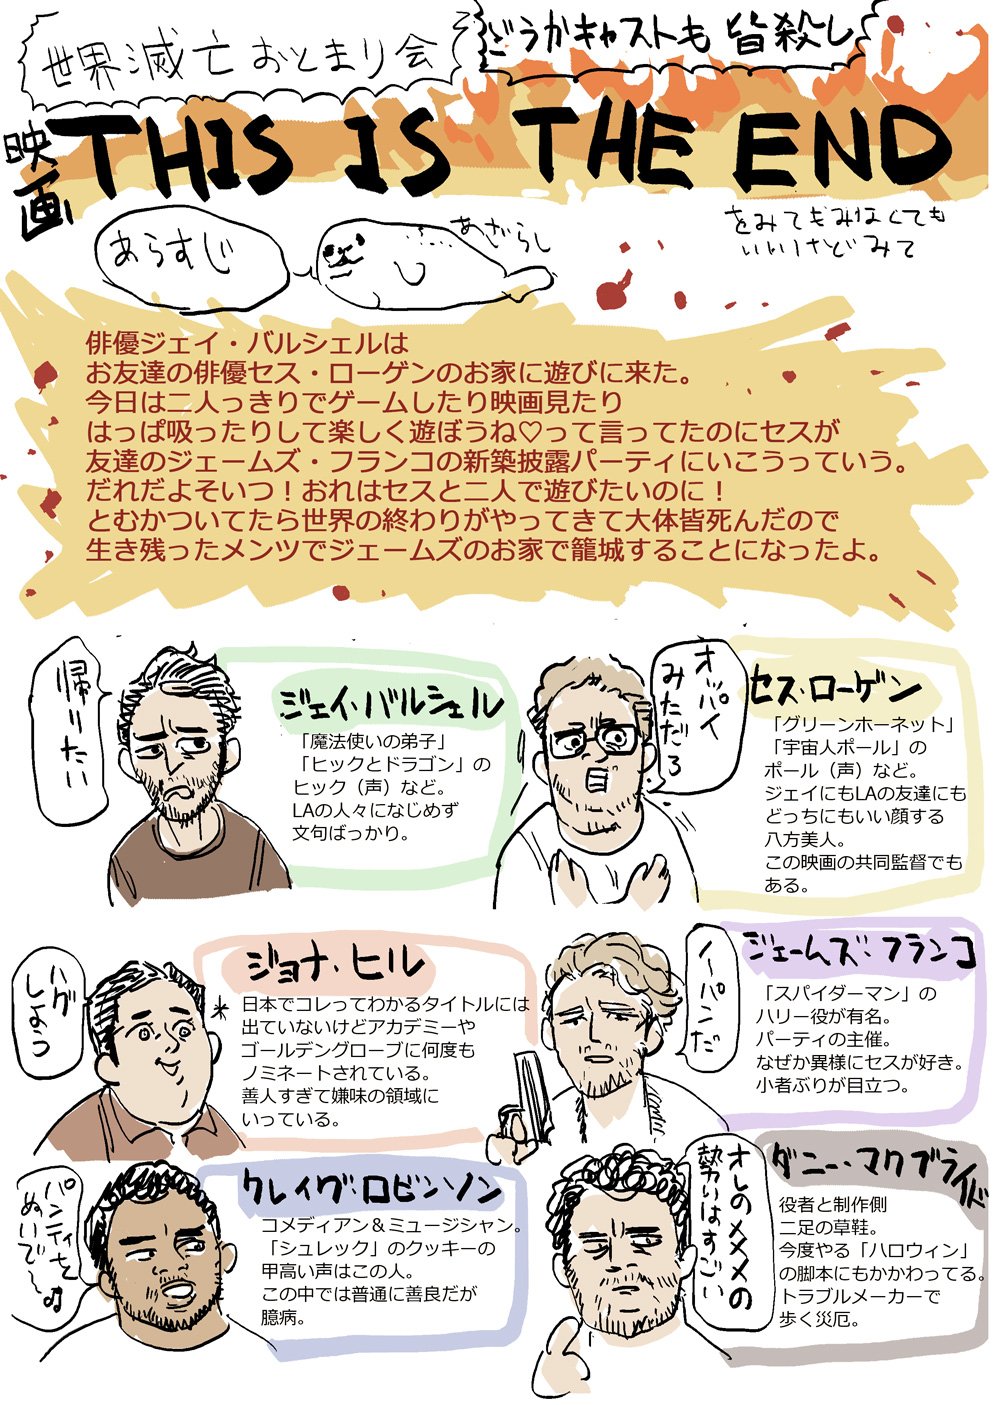 世界滅亡おとまり会
どうかキャストも皆殺し
映画
THIS IS THE END
をみてもみなくても
いいけどみて
あらすじ
あざらし
俳優ジェイ・バルシェルは
お友達の俳優セス・ローゲンのお家に遊びに来た。
今日は二人っきりでゲームしたり映画見たり
はっぱ吸ったりして楽しく遊ぼうね♡って言ってたのにセスが
友達のジェームズ・フランコの新築披露パーティにいこうっていう。
だれだよそいつ！おれはセスと二人で遊びたいのに！
とむかついてたら世界の終わりがやってきて大体皆死んだので
生き残ったメンツでジェームズのお家で籠城することになったよ。
帰りたい
ジェイ・バルシェル
「魔法使いの弟子」
「ヒックとドラゴン」の
ヒック（声）など。
LAの人々になじめず
文句ばっかり。
オッパイ
みただろ
セス・ローゲン
「グリーンホーネット」
「宇宙人ポール」の
ポール（声）など。
ジェイにもLAの友達にも
どっちにもいい顔する
八方美人。
この映画の共同監督でも
ある。
ハグ
しよう
ジョナ・ヒル
日本でコレってわかるタイトルには
出ていないけどアカデミーや
ゴールデングローブに何度も
ノミネートされている。
善人すぎて嫌味の領域に
いっている。
ノーパンだ
ジェームズ・フランコ
「スパイダーマン」の
ハリー役が有名。
パーティの主催。
なぜか異様にセスが好き。
小者ぶりが目立つ。
パンティを
ぬいで〜♪
クレイグ・ロビンソン
コメディアン＆ミュージシャン。
「シュレック」のクッキーの
甲高い声はこの人。
この中では普通に善良だが
臆病。
オレのメメメの
勢いはすごい
ダニー・マクブライド
役者と制作側
二足の草鞋。
今度やる「ハロウィン」
の脚本にもかかわってる。
トラブルメーカーで
歩く災厄。